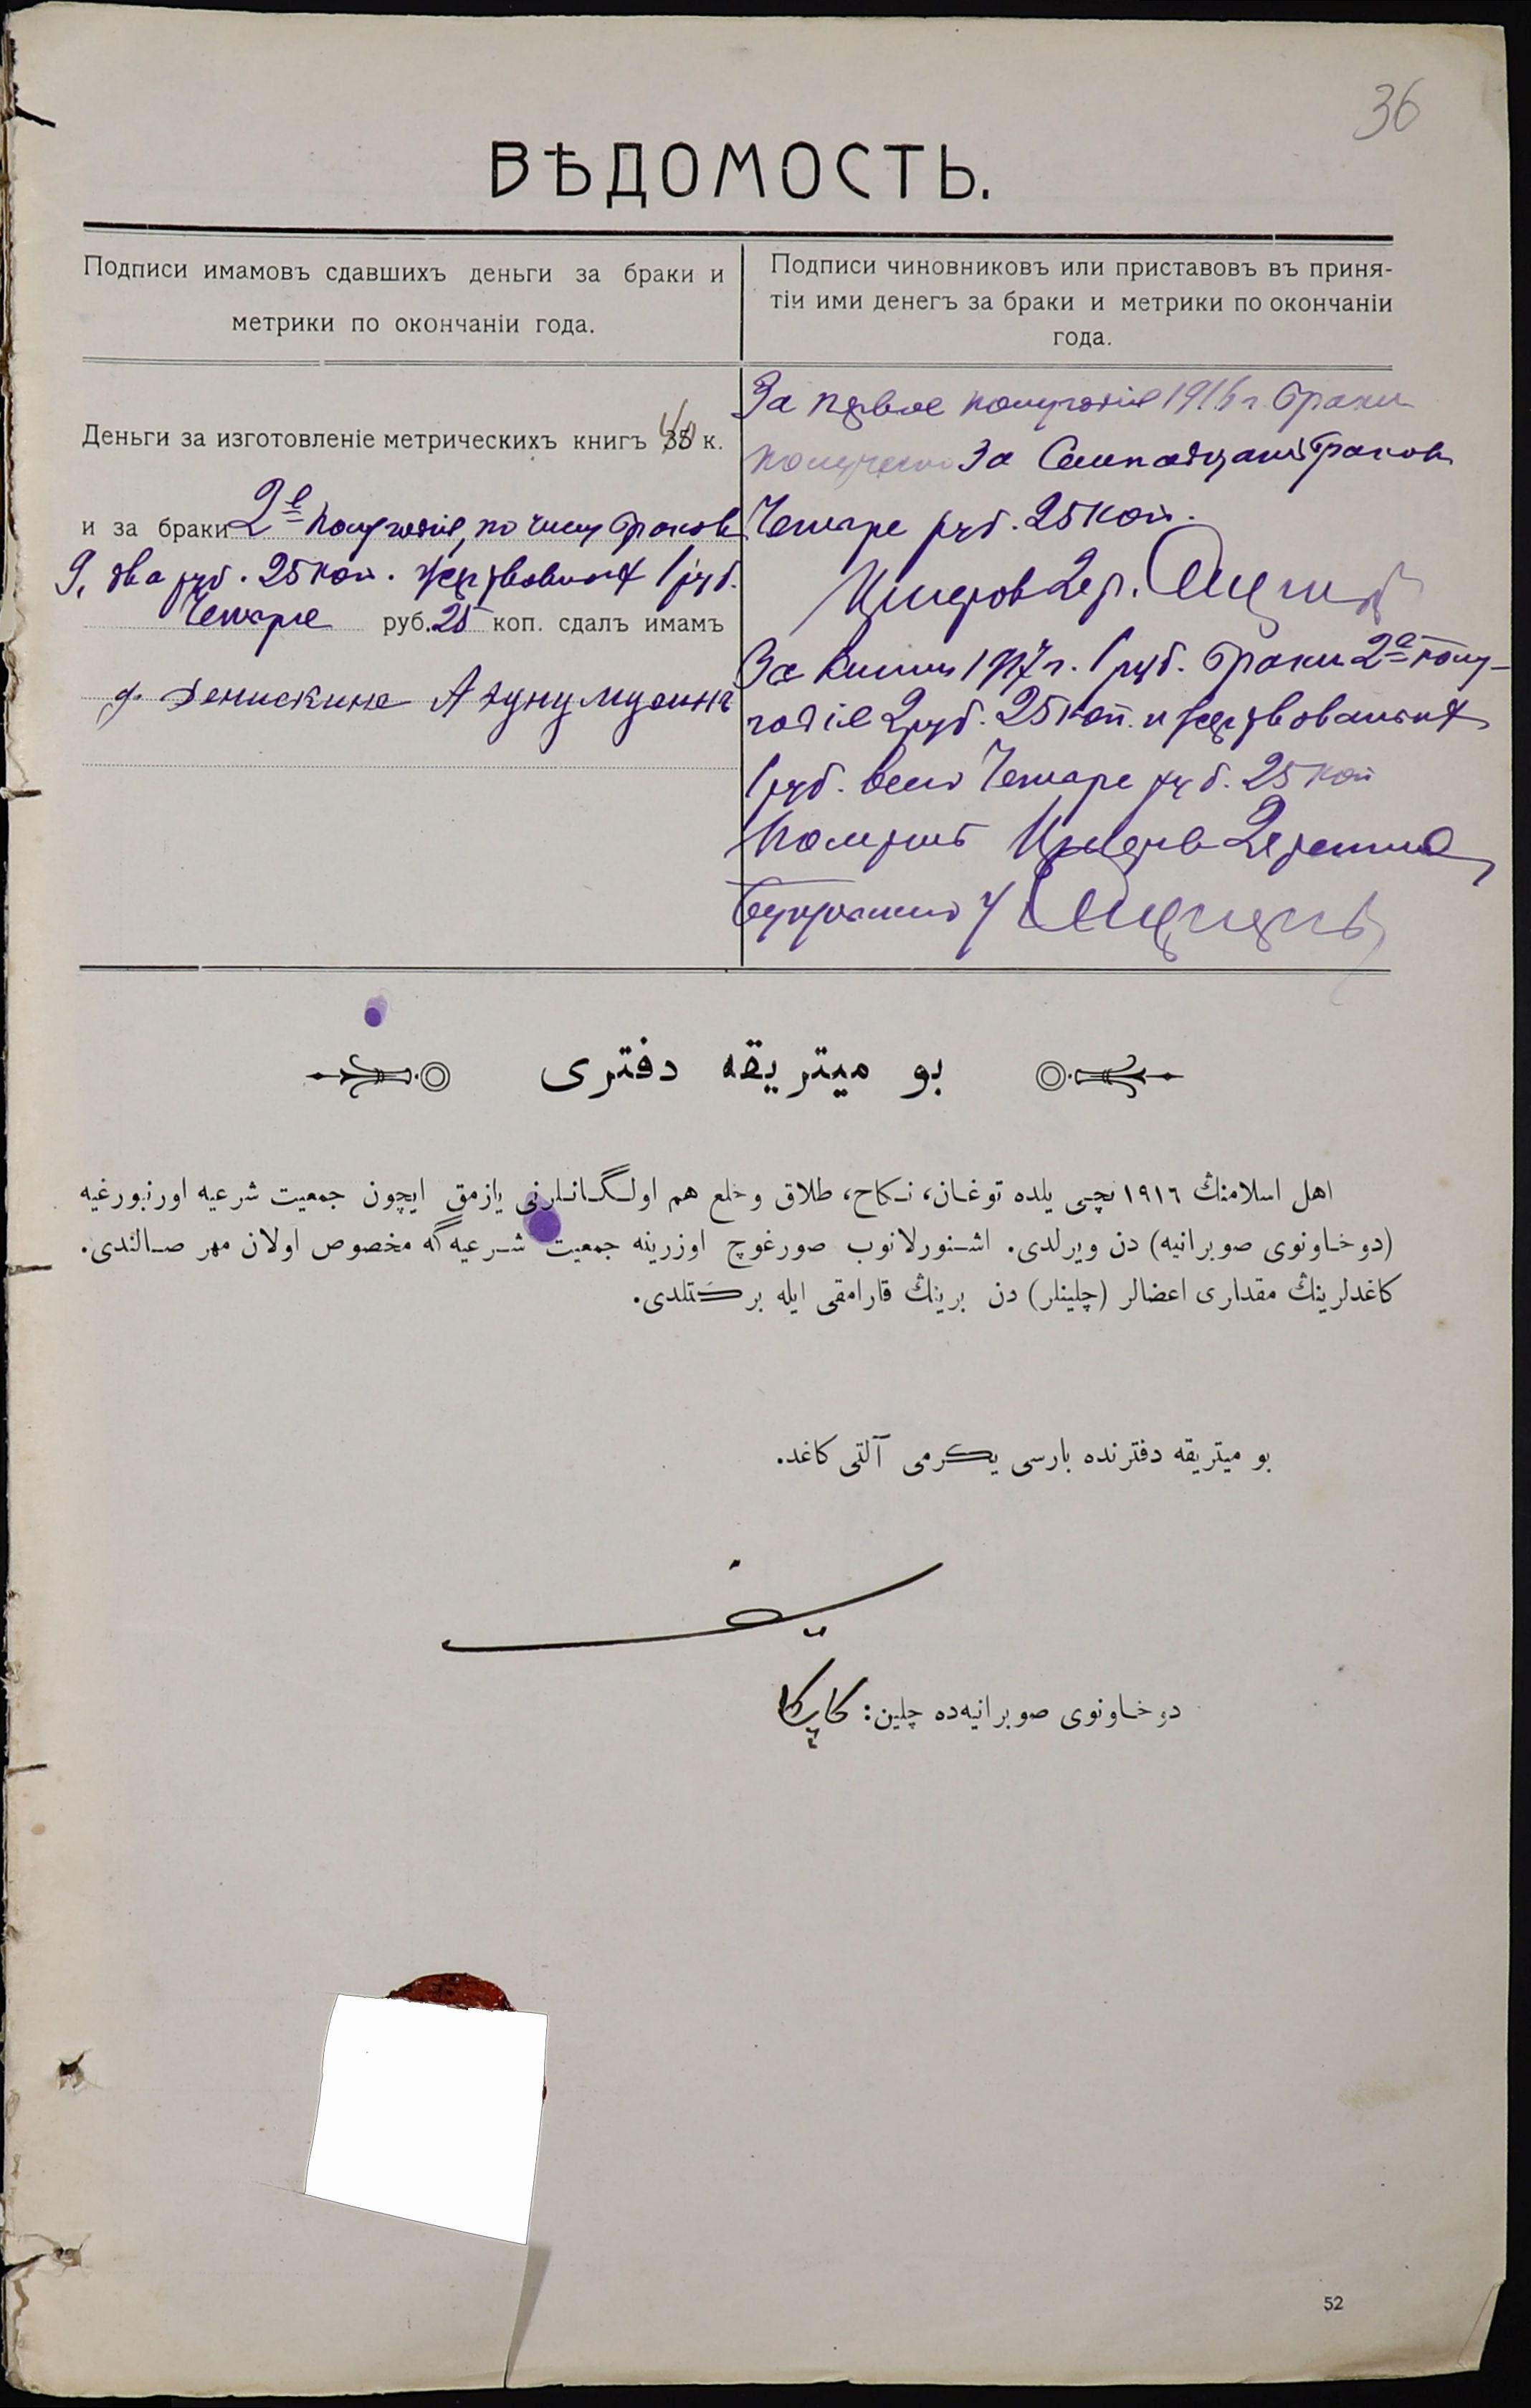 36
ВѢДОМОСТЬ.
Подписи имамовъ сдавшихъ деньги за браки и
метрики по окончаніи года.
Подписи чиновниковъ или приставовъ въ приня-
тіи ими денегъ за браки и метрики по окончаніи
года.
Деньги за изготовленіе метрическихъ книгъ 35 к.
и за браки 2е полугодіе, по числу браковъ
9, два руб. 25 коп. 1 руб.
Четыре руб. 25 коп. сдалъ имамъ
д. Денискина
За первое полугодіе 1916 г. браки
получено за Семнадцать браков
Четыре руб. 25 коп.
За книги 1917 г. 1 руб. браки 2е полу-
годіе 2 руб. 25 коп. и
1 руб. всего Четыре руб. 25 коп
بو ميتريقه دفترى
اهل اسلامنڭ ١٩١٦ نچى يلده توغان، نكاح، طلاق وخلع هم اولگانلرنى يازمق ايچون جمعيت شرعيه اورنبورغيه
(دوخاونوى صوبرانيه) دن ويرلدى. اشنورلانوب صورغوچ اوزرينه جمعيت شرعيه گه مخصوص اولان مهر صالندى.
كاغدلرينڭ مقدارى اعضالر (چلينلر) دن برينڭ قارامقى ايله بركتلدى.
بو ميتريقه دفترنده بارسى يكرمى آلتى كاغد.
دوخاونوى صوبرانيه‌ده چلين:
52